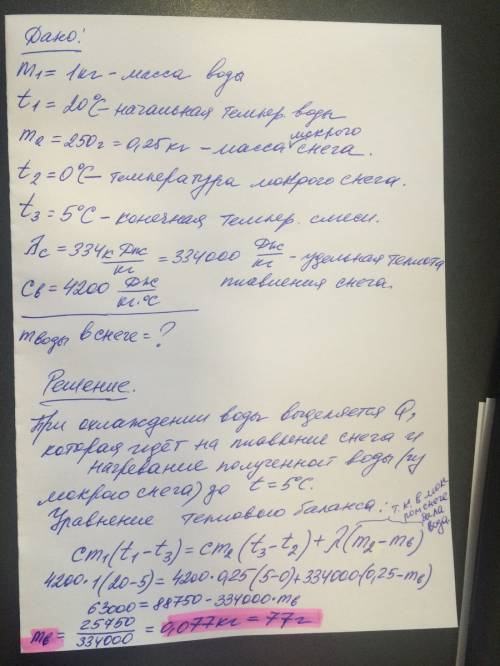 Дано:
m₁ = 1кг - масса воды
t₁ = 20°С - начальная темпер. воды
m₂ = 250г = 0,25кг - масса мокрого снега.
t₂ = 0°С - температура мокрого снега.
t₃ = 5°С - конечная темпер. смеси.
λс = 334к Дж/кг = 334000 Дж/кг - удельная теплота плавления снега.
Св = 4200 Дж/кг·°С
mводы в снеге = ?
Решение.
При охлаждении воды выделяется Q,
которая идёт на плавление снега и
нагревание полученной воды (из
мокрого снега) до t = 5°С.
Уравнение теплового баланса: т.к в мокром снеге была вода
cm₁(t₁-t₃) = cm₂(t₃-t₂) + λ(m₂-mв)
4200·1(20-5) = 4200·0,25(5-0)+334000(0,25-mв)
63000 = 88750 - 334000·mв
mв = 25750/334000 = 0,077кг = 77г